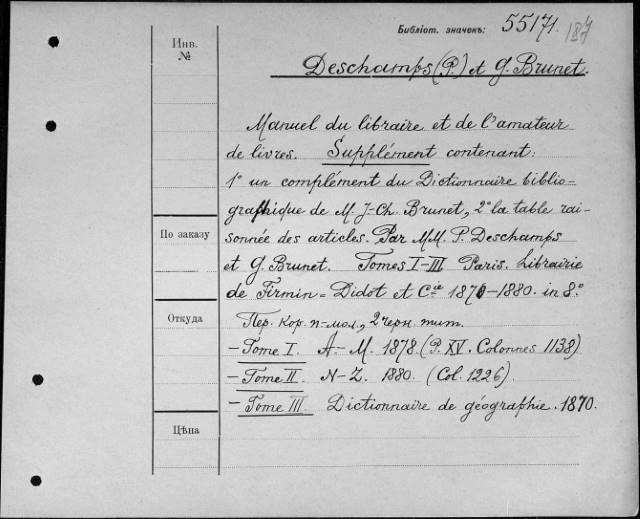 Библіот. значекъ: 55171. 187
Инв.
№
Deschamps (P.) et G. Brunet.
Manuel du libraire et de l'amateur
de livres. Supplément contenant:
1° un complément du Dictionnaire biblio-
graphique de M. J-Ch. Brunet, 2° la table rai-
sonnée des articles. Par MM. P. Deschamps
По заказу
et G. Brunet. Tomes I-III Paris. Librairie
de Firmin=Didot et Cie 1870-1880. in 8.°
Откуда
Пер. кор. п-мол., 2 черн. тит.
- Tome I. A.- M. 1878. (P. XV. Colonnes 1138)
- Tome II. N-Z. 1880. (Col. 1226)
- Tome III. Dictionnaire de géographie. 1870.
Цѣна